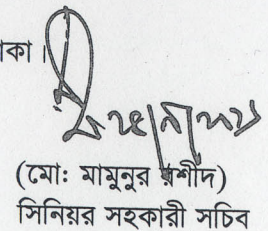 কা।
(মো: মামুনুর রশীদ)
সিনিয়র সহকারী সচিব